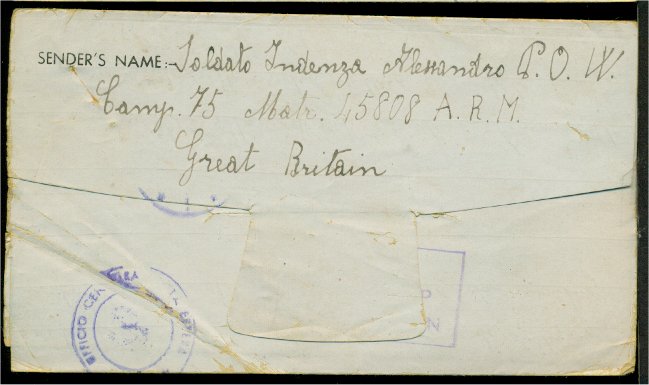 SENDER'S NAME:- Soldato Indenza Alessandro P. O. W.
Camp. 75 Matr. 45808 A. R. M.
Great Britain
UFFICIO